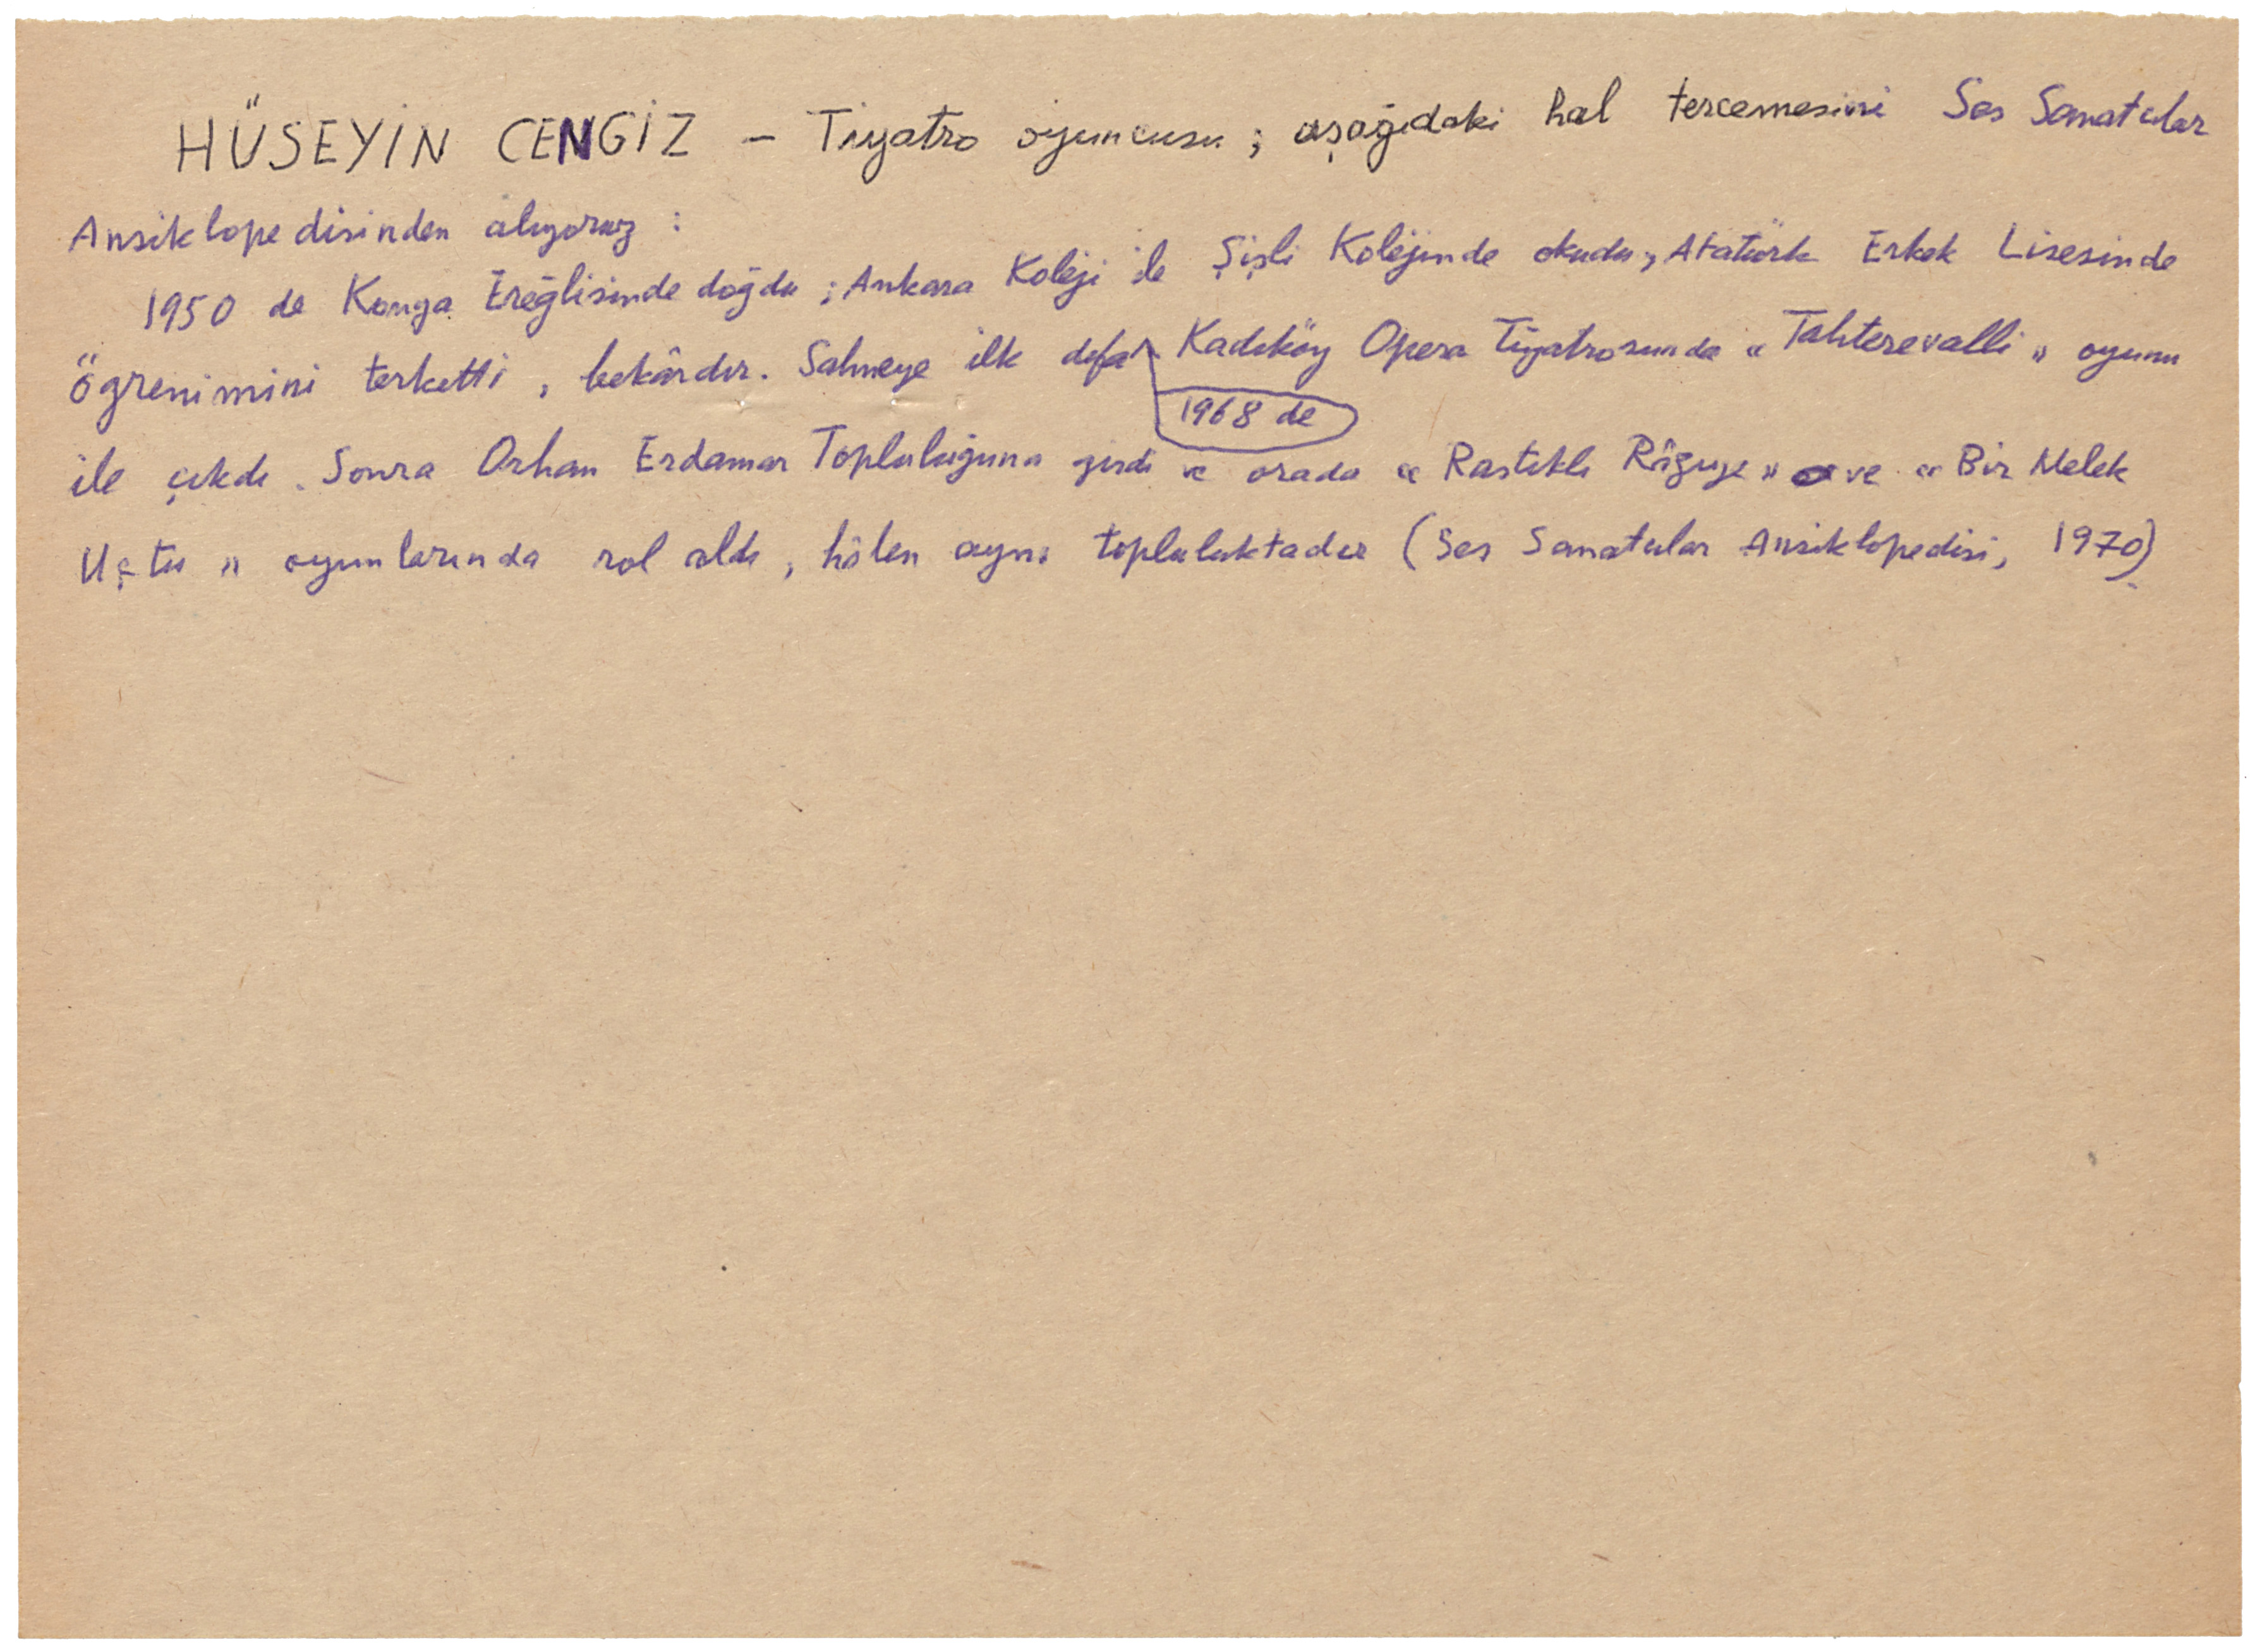 HÜSEYİN CENGİZ – Tiyatro oyuncusu ; aşağıdaki hal tercemesini Ses Sanatcılar
Ansiklopedisinden alıyoruz :
1950 de Konya Ereğlisinde doğdu ; Ankara Koleji ile Şişli Kolejinde okudu, Atatürk Erkek Lisesinde
öğrenimini terketti , bekârdır. Sahneye ilk defa 1968 de Kadıköy Opera Tiyatrosunda « Tahterevalli » oyunu
ile çıkdı . Sonra Orhan Erdamar Topluluğuna girdi ve orada « Rastıklı Râziye » ve « Bir Melek
Uçtu » oyunlarında rol aldı , hâlen aynı topluluktadır (Ses Sanatcılar Ansiklopedisi, 1970)